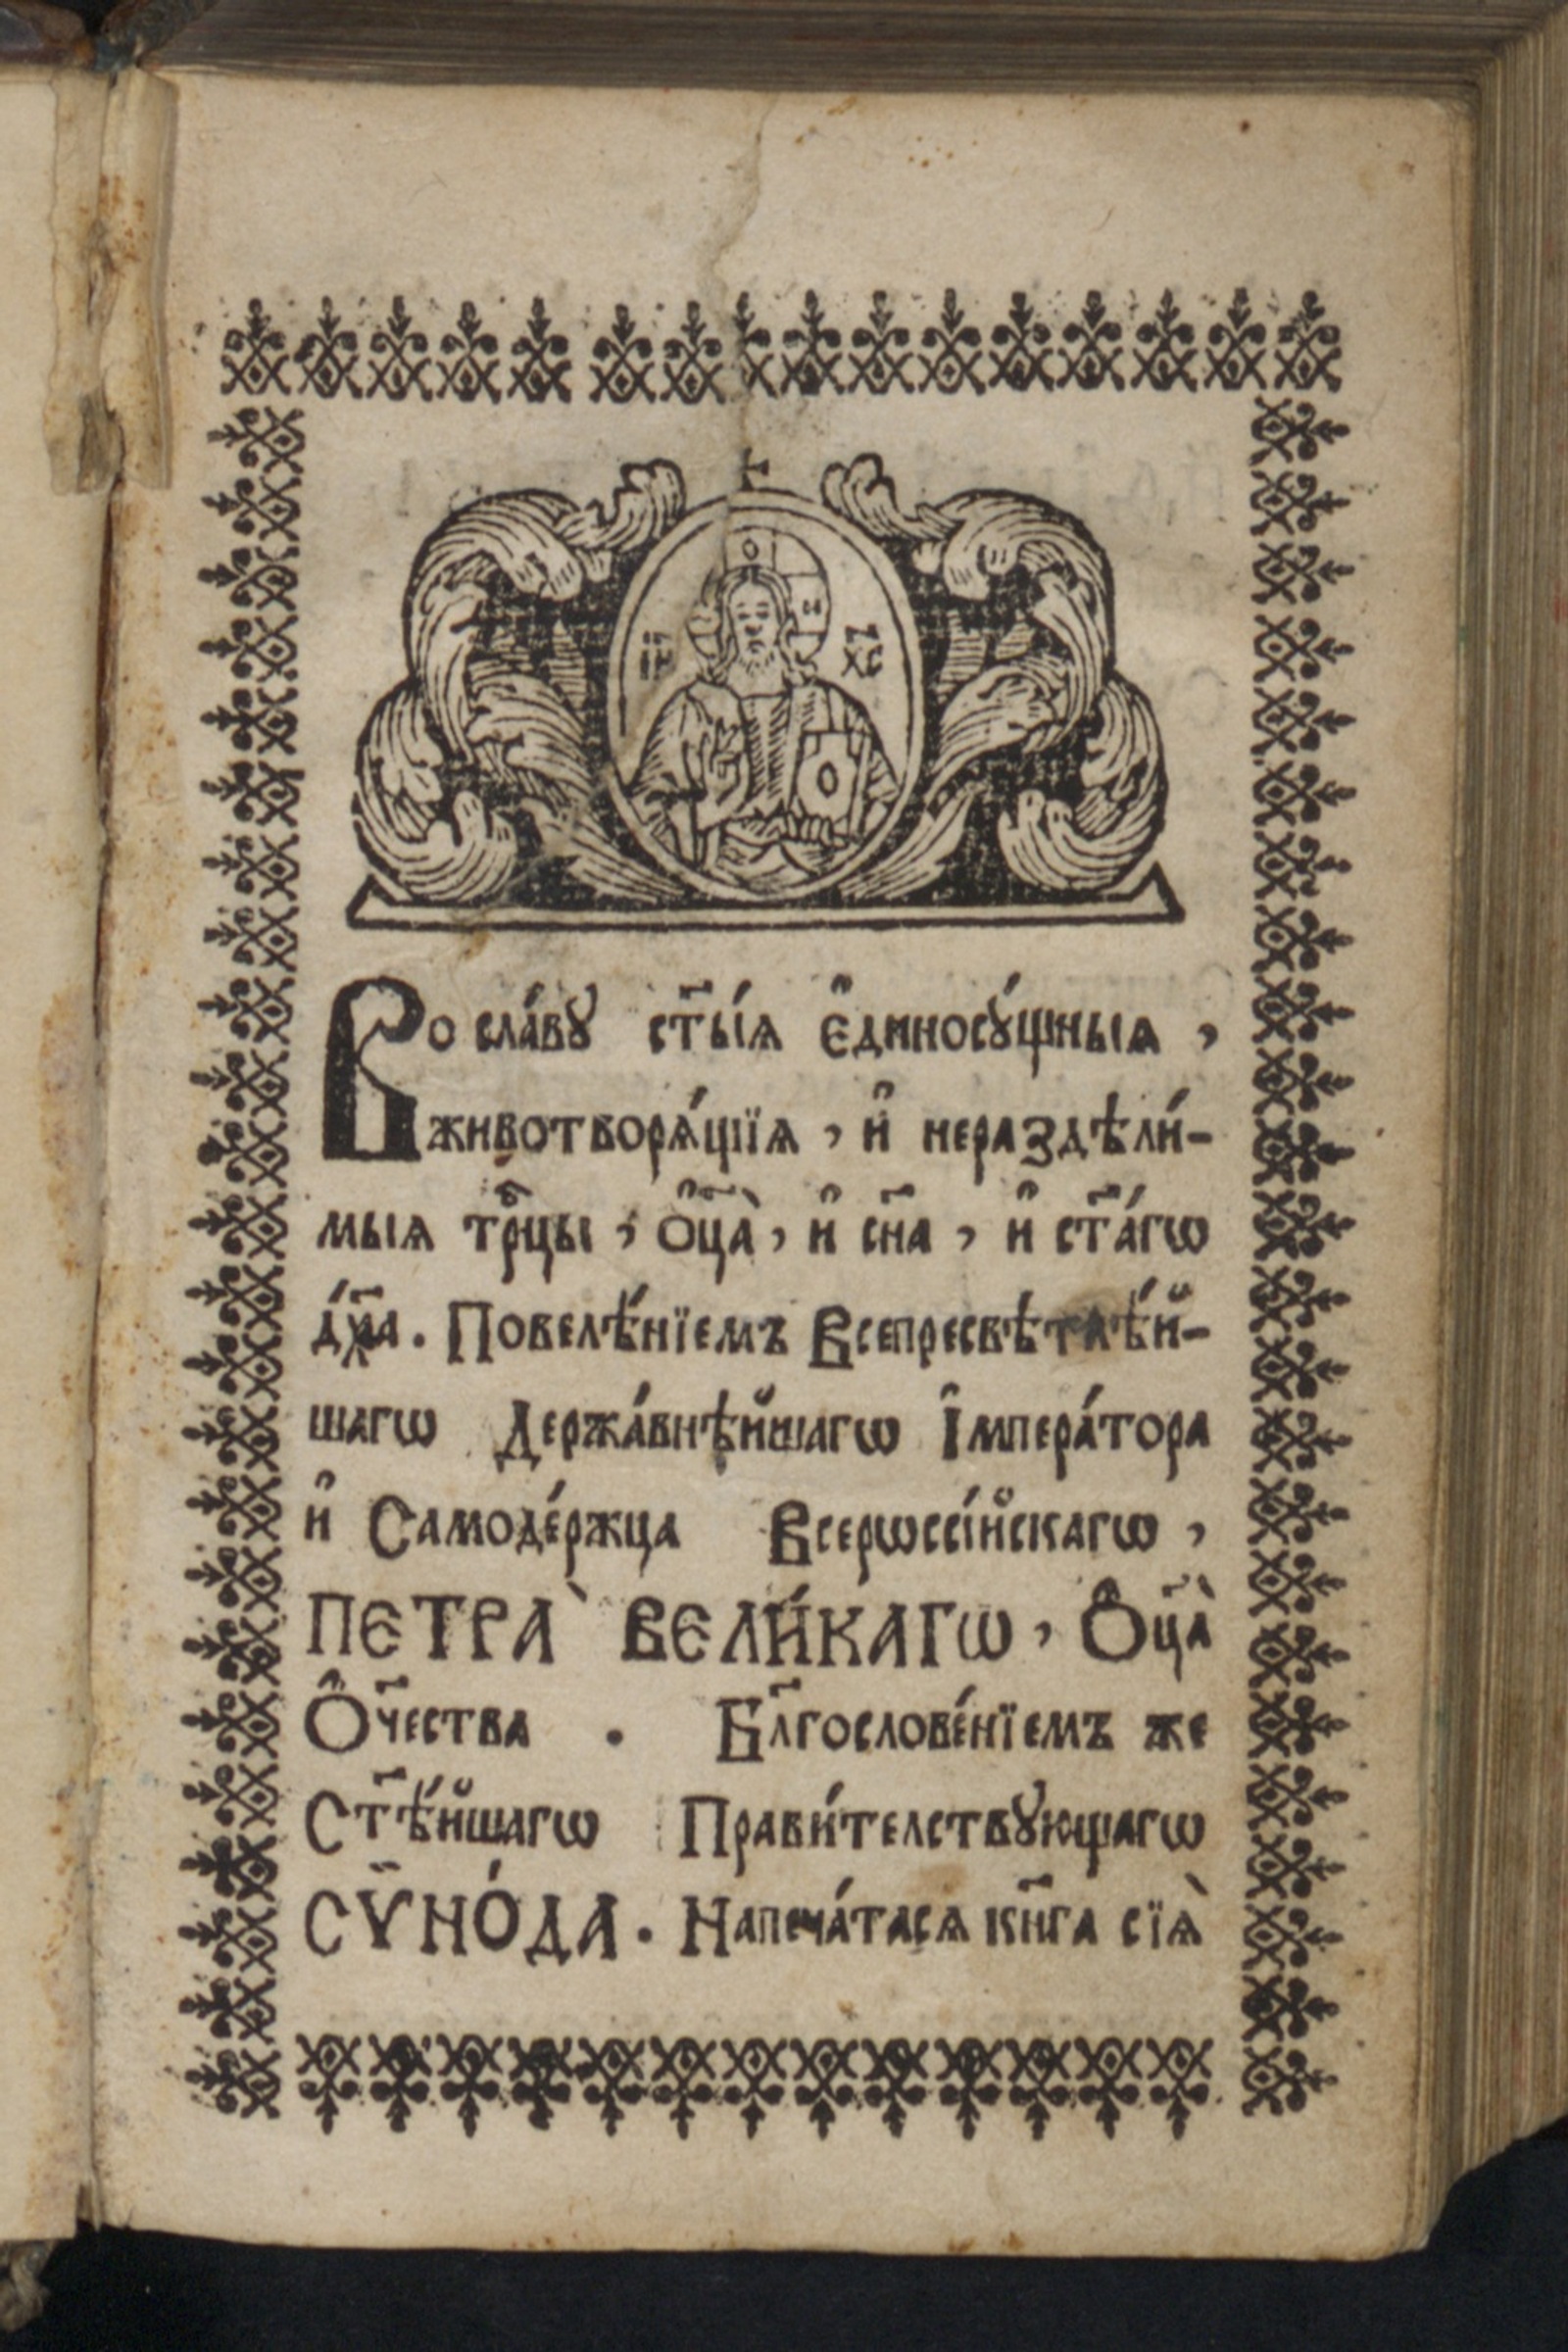 О
Н
І҃И҃ Х҃С
Во сла́вꙋ ст҃ы́ѧ є҆диносꙋ́щныѧ ,
животворѧ́щїѧ , и҆ нераздѣли́-
мыѧ трⷪ҇цы , ѻ҆ц҃а̀ , и҆ сн҃а , и҆ ст҃а́гѡ
дх҃а . Повелѣ́нїемъ Всепресвѣ́тлѣ́й-
шагѡ Держа́внѣйшагѡ І҆мпера́тора
и҆ Самоде́ржца Всерѡссі́йскагѡ ,
ПЕТРА̀ ВЕЛИ́КАГѠ , Ѻ҆ц҃а̀
Ѻ҆ч҃ества . Бл҃гослове́нїемъ же
Ст҃ѣ́йшагѡ Прави́телствꙋющагѡ
СѶНО́ДА . Напеча́тасѧ кн҃га сїѧ̀